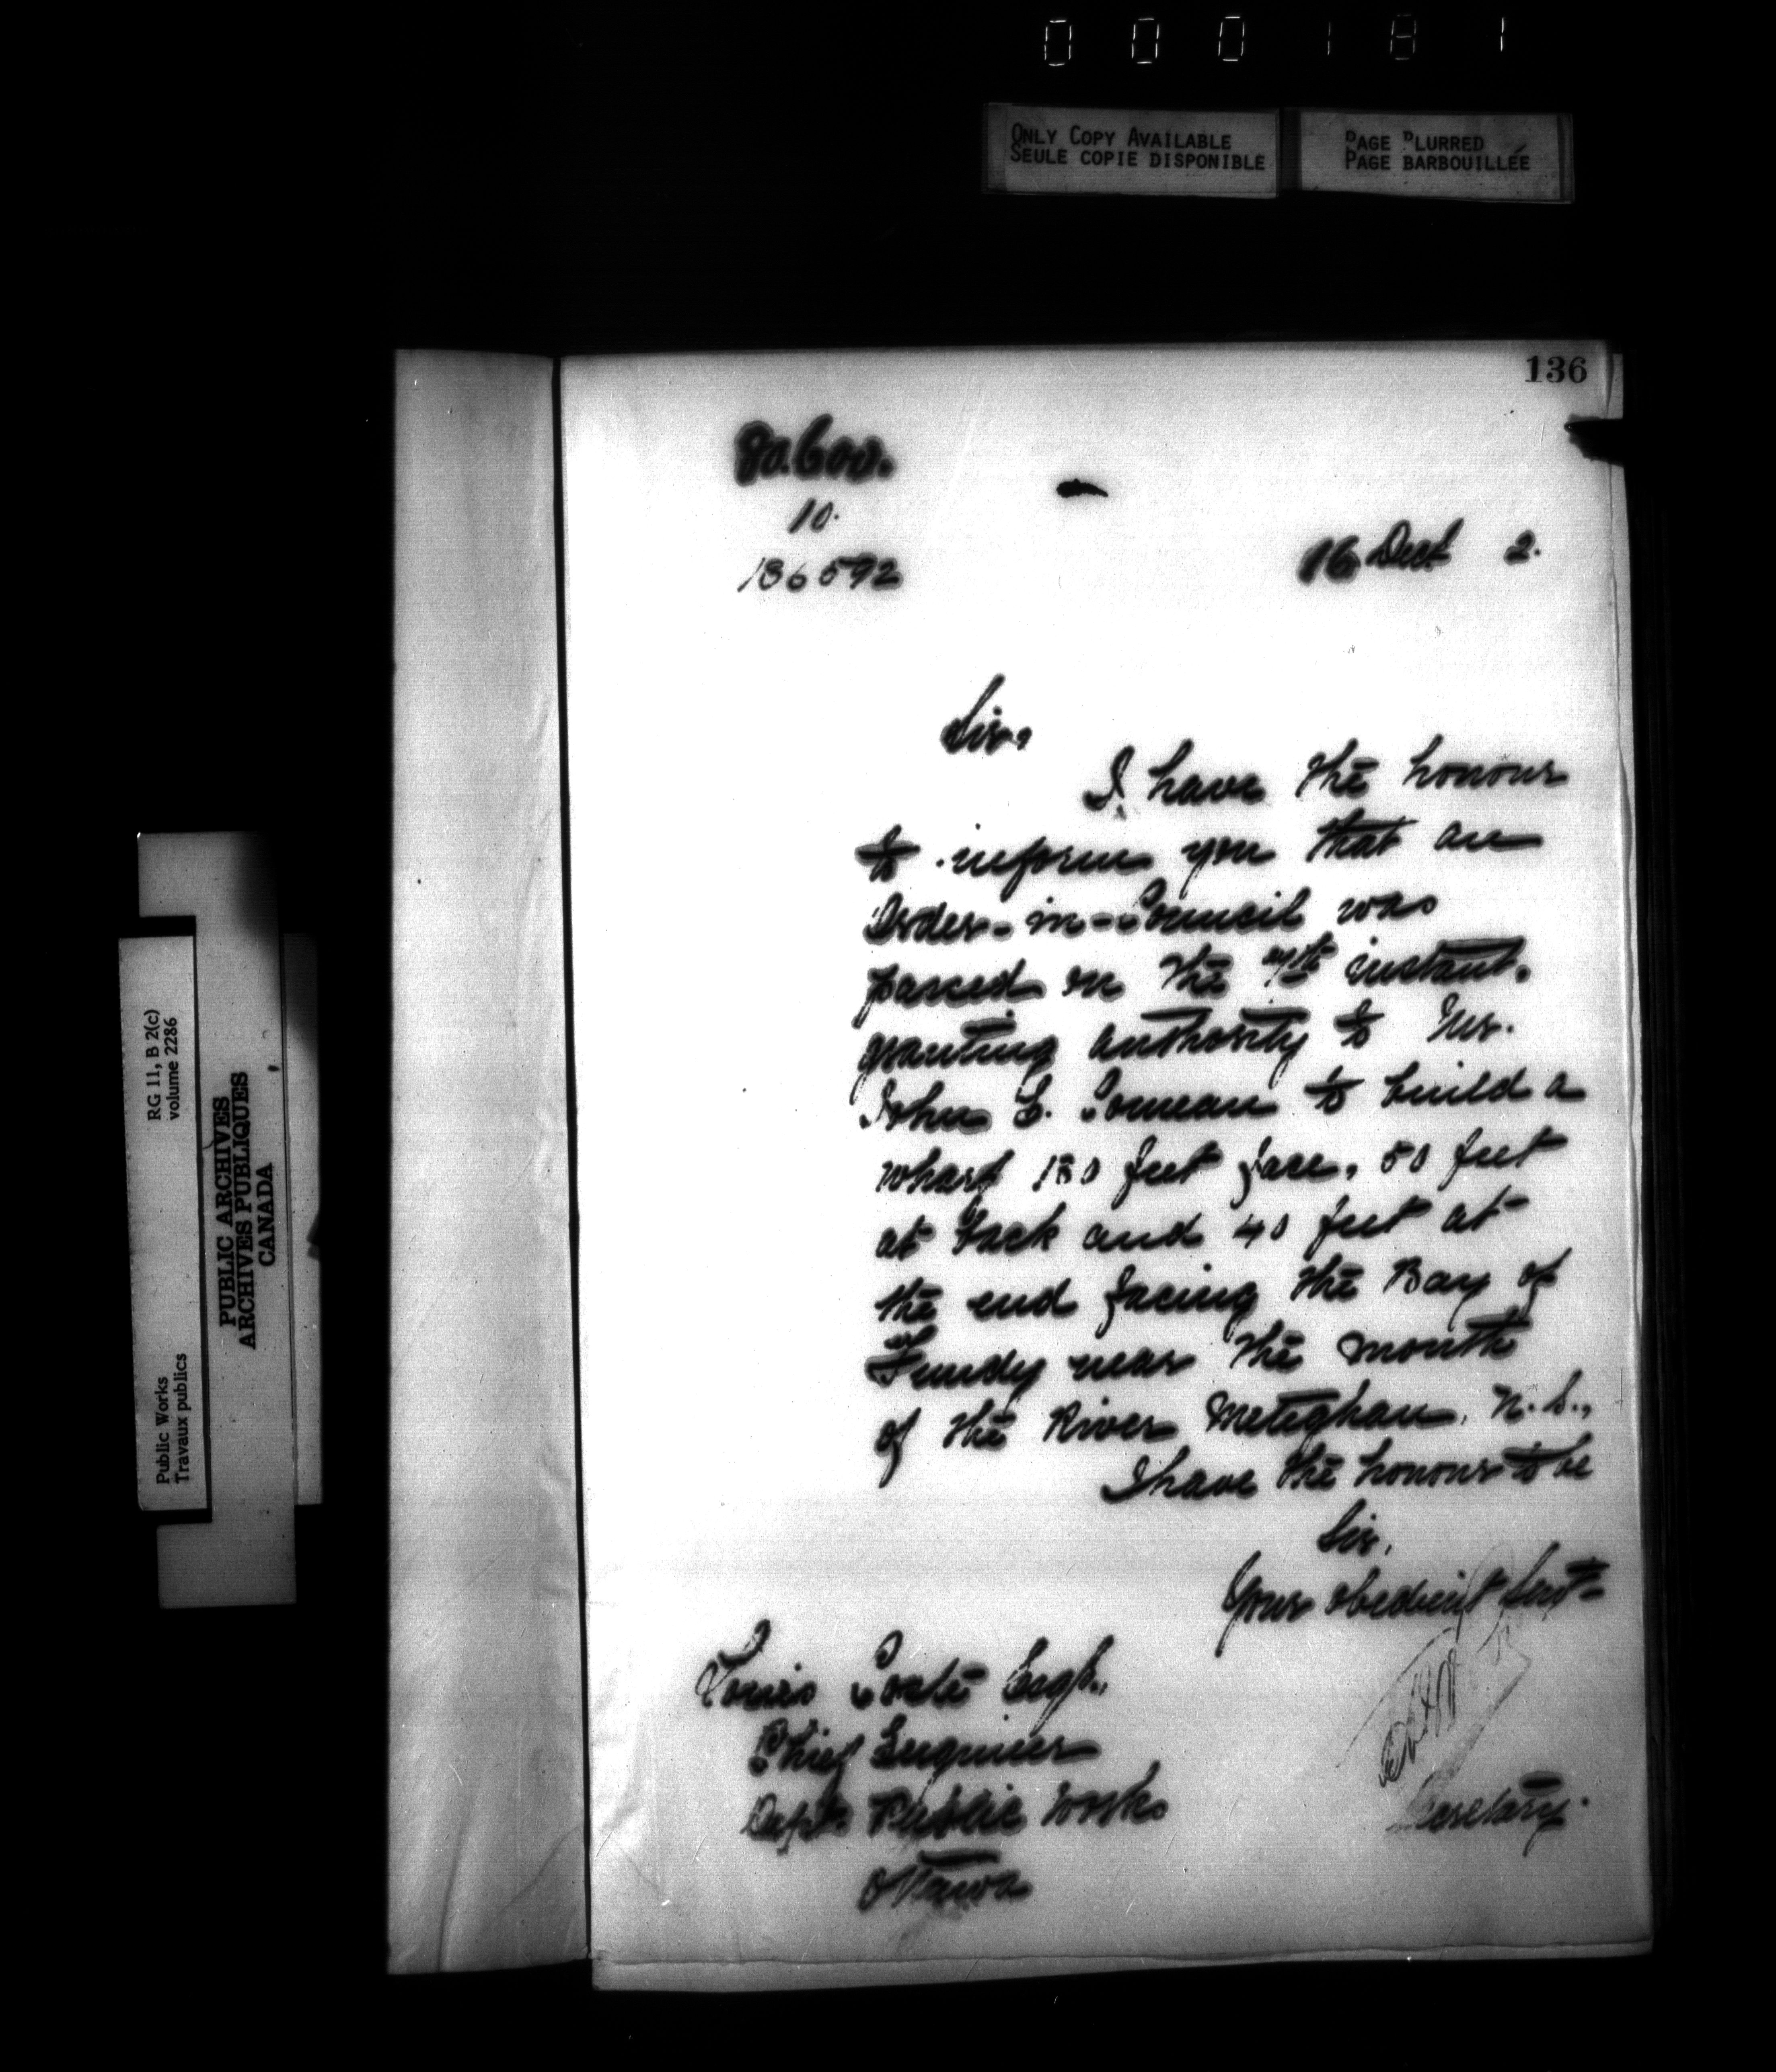 000181
ONLY COPY AVAILABLE
SEULE COPIE DISPONIBLE
PAGE BLURRED
PAGE BARBOUILLÉE
136
80.600.
10.
136592
16 Dect 2.
Sir,
I have the honour
to inform you that an
Order-in-Council was
passed on the 7th instant,
granting authority to Mr.
John E. Comeau to build a
wharf 150 feet face, 50 feet
at back and 40 feet at
the end facing the Bay of
Fundy near the mouth
of the River Meteghan, N.S.,
I have the honour to be
Sir,
Your obedient Servt
Louis Coste Esqr.,
Chief Engineer
Dept. Public Works
Ottawa
Secretary.
RG 11, B 2(c)
volume 2286
Public Works
Travaux publics
PUBLIC ARCHIVES
ARCHIVES PUBLIQUES
CANADA